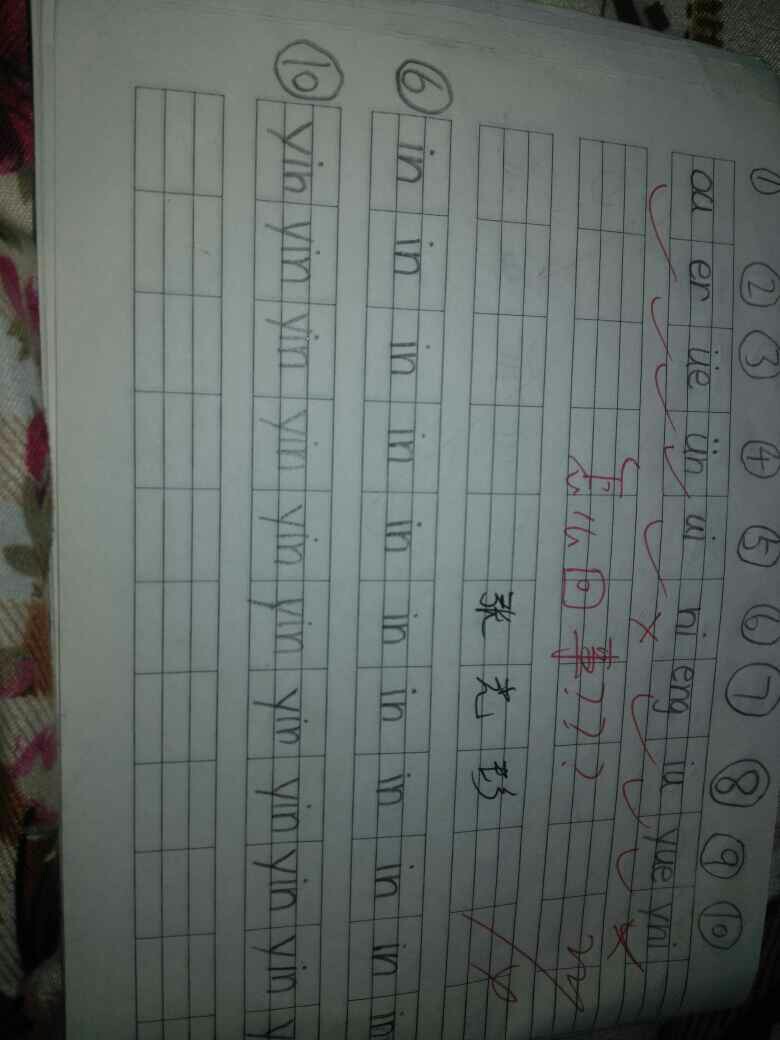 ① ② ③ ④ ⑤ ⑥ ⑦ ⑧ ⑨ ⑩
ou er üe ün ui ni eng iu yue yni
怎么回事???
张志彤
⑥ in in in in in in in in in in in
⑩ yin yin yin yin yin yin yin yin yin yin y